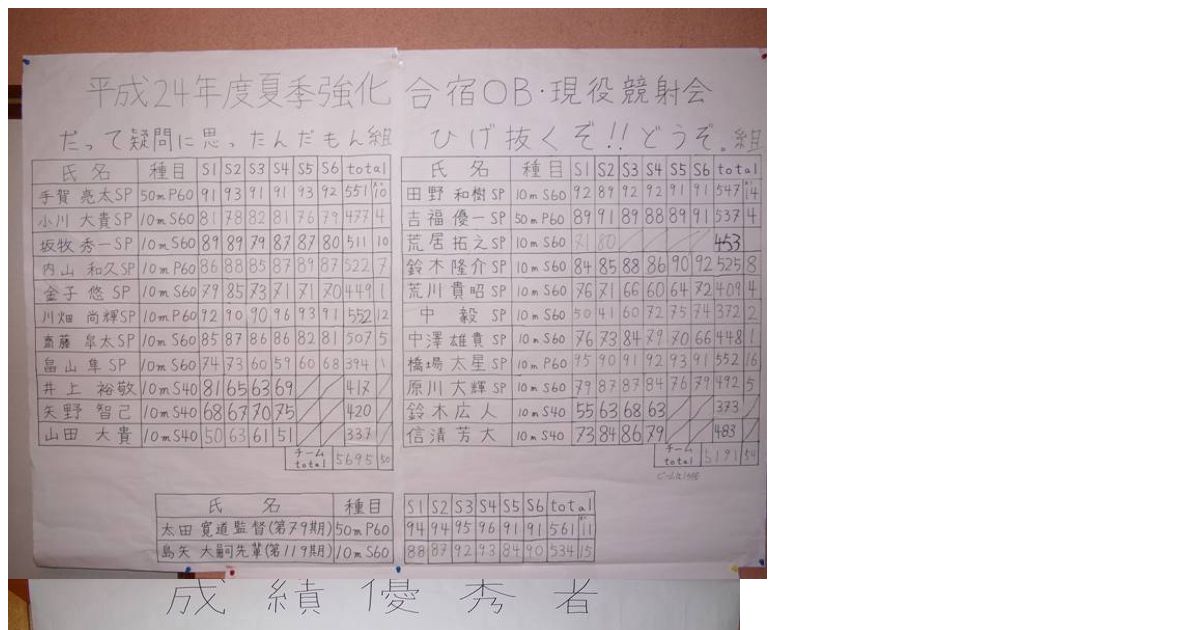 平成24年度夏季強化合宿OB・現役競射会
だって疑問に思ったんだもん組
氏名 種目 S1 S2 S3 S4 S5 S6 total
手賀 亮太SP 50mP60 91 93 91 91 93 92 551 10
小川 大貴SP 10mS60 81 78 82 81 76 79 477 4
坂牧 秀一SP 10mS60 89 89 79 87 87 80 511 10
内山 和久SP 10mP60 86 88 85 87 89 87 522 7
金子 悠SP 10mS60 79 85 73 71 71 70 449 1
川畑 尚輝SP 10mP60 92 90 90 96 93 91 552 12
齋藤 皐太SP 10mS60 85 87 86 86 82 81 507 5
畠山 隼SP 10mS60 74 73 60 59 60 68 394 1
井上 裕敬 10mS40 81 65 63 69 417
矢野 智己 10mS40 68 67 70 75 420
山田 大貴 10mS40 50 63 61 51 337
チームtotal 5695 50
ひげ抜くぞ!!どうぞ。組
氏名 種目 S1 S2 S3 S4 S5 S6 total
田野 和樹SP 10mS60 92 89 92 92 91 91 547 14
吉福 優一SP 50mP60 89 91 89 88 89 91 537 4
荒居 拓之SP 10mS60 71 80 453
鈴木 隆介SP 10mS60 84 85 88 86 90 92 525 8
荒川 貴昭SP 10mS60 76 71 66 60 64 72 409 4
中 毅SP 10mS60 50 41 60 72 75 74 372 2
中澤 雄貴SP 10mS60 76 73 84 79 70 66 448 1
橋場 太星SP 10mP60 95 90 91 92 93 91 552 16
原川 大輝SP 10mS60 79 87 87 84 76 79 492 5
鈴木 広人 10mS40 55 63 68 63 373
信清 芳大 10mS40 73 84 86 79 483
チームtotal 5191 54
氏名 種目 S1 S2 S3 S4 S5 S6 total
太田 寛道監督(第79期) 50mP60 94 94 95 96 91 91 561 11
島矢 大嗣先輩(第119期) 10mS60 88 87 92 93 84 90 534 15
成績優秀者